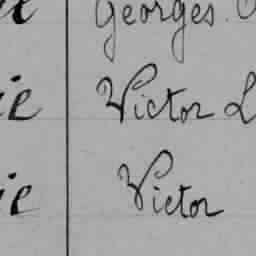 Georges
ie Victor L
ie Victor